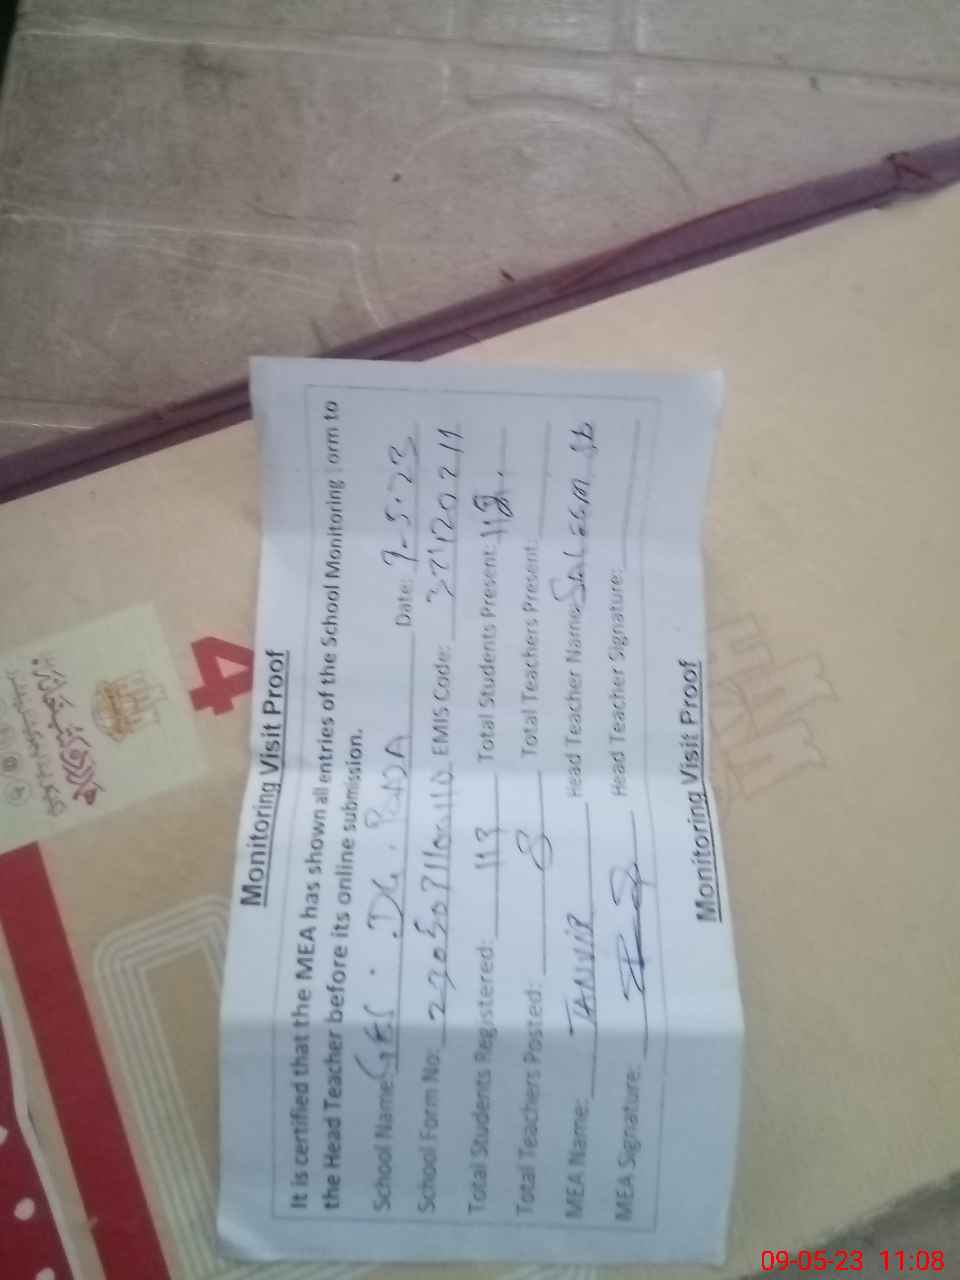 4
Monitoring Visit Proof
It is certified that the MEA has shown all entries of the School Monitoring orm to
the Head Teacher before its online submission.
School Name GES . DG . Date: 9-5-23
School Form No: EMIS Code: 37120211
Total Students Registered: 113 Total Students Present: 112
Total Teachers Posted: 8 Total Teachers Present:
MEA Name: TANVIR Head Teacher Name SALEEM Sb
MEA Signature: Head Teacher Signature:
Monitoring Visit Proof
09-05-23 11:08